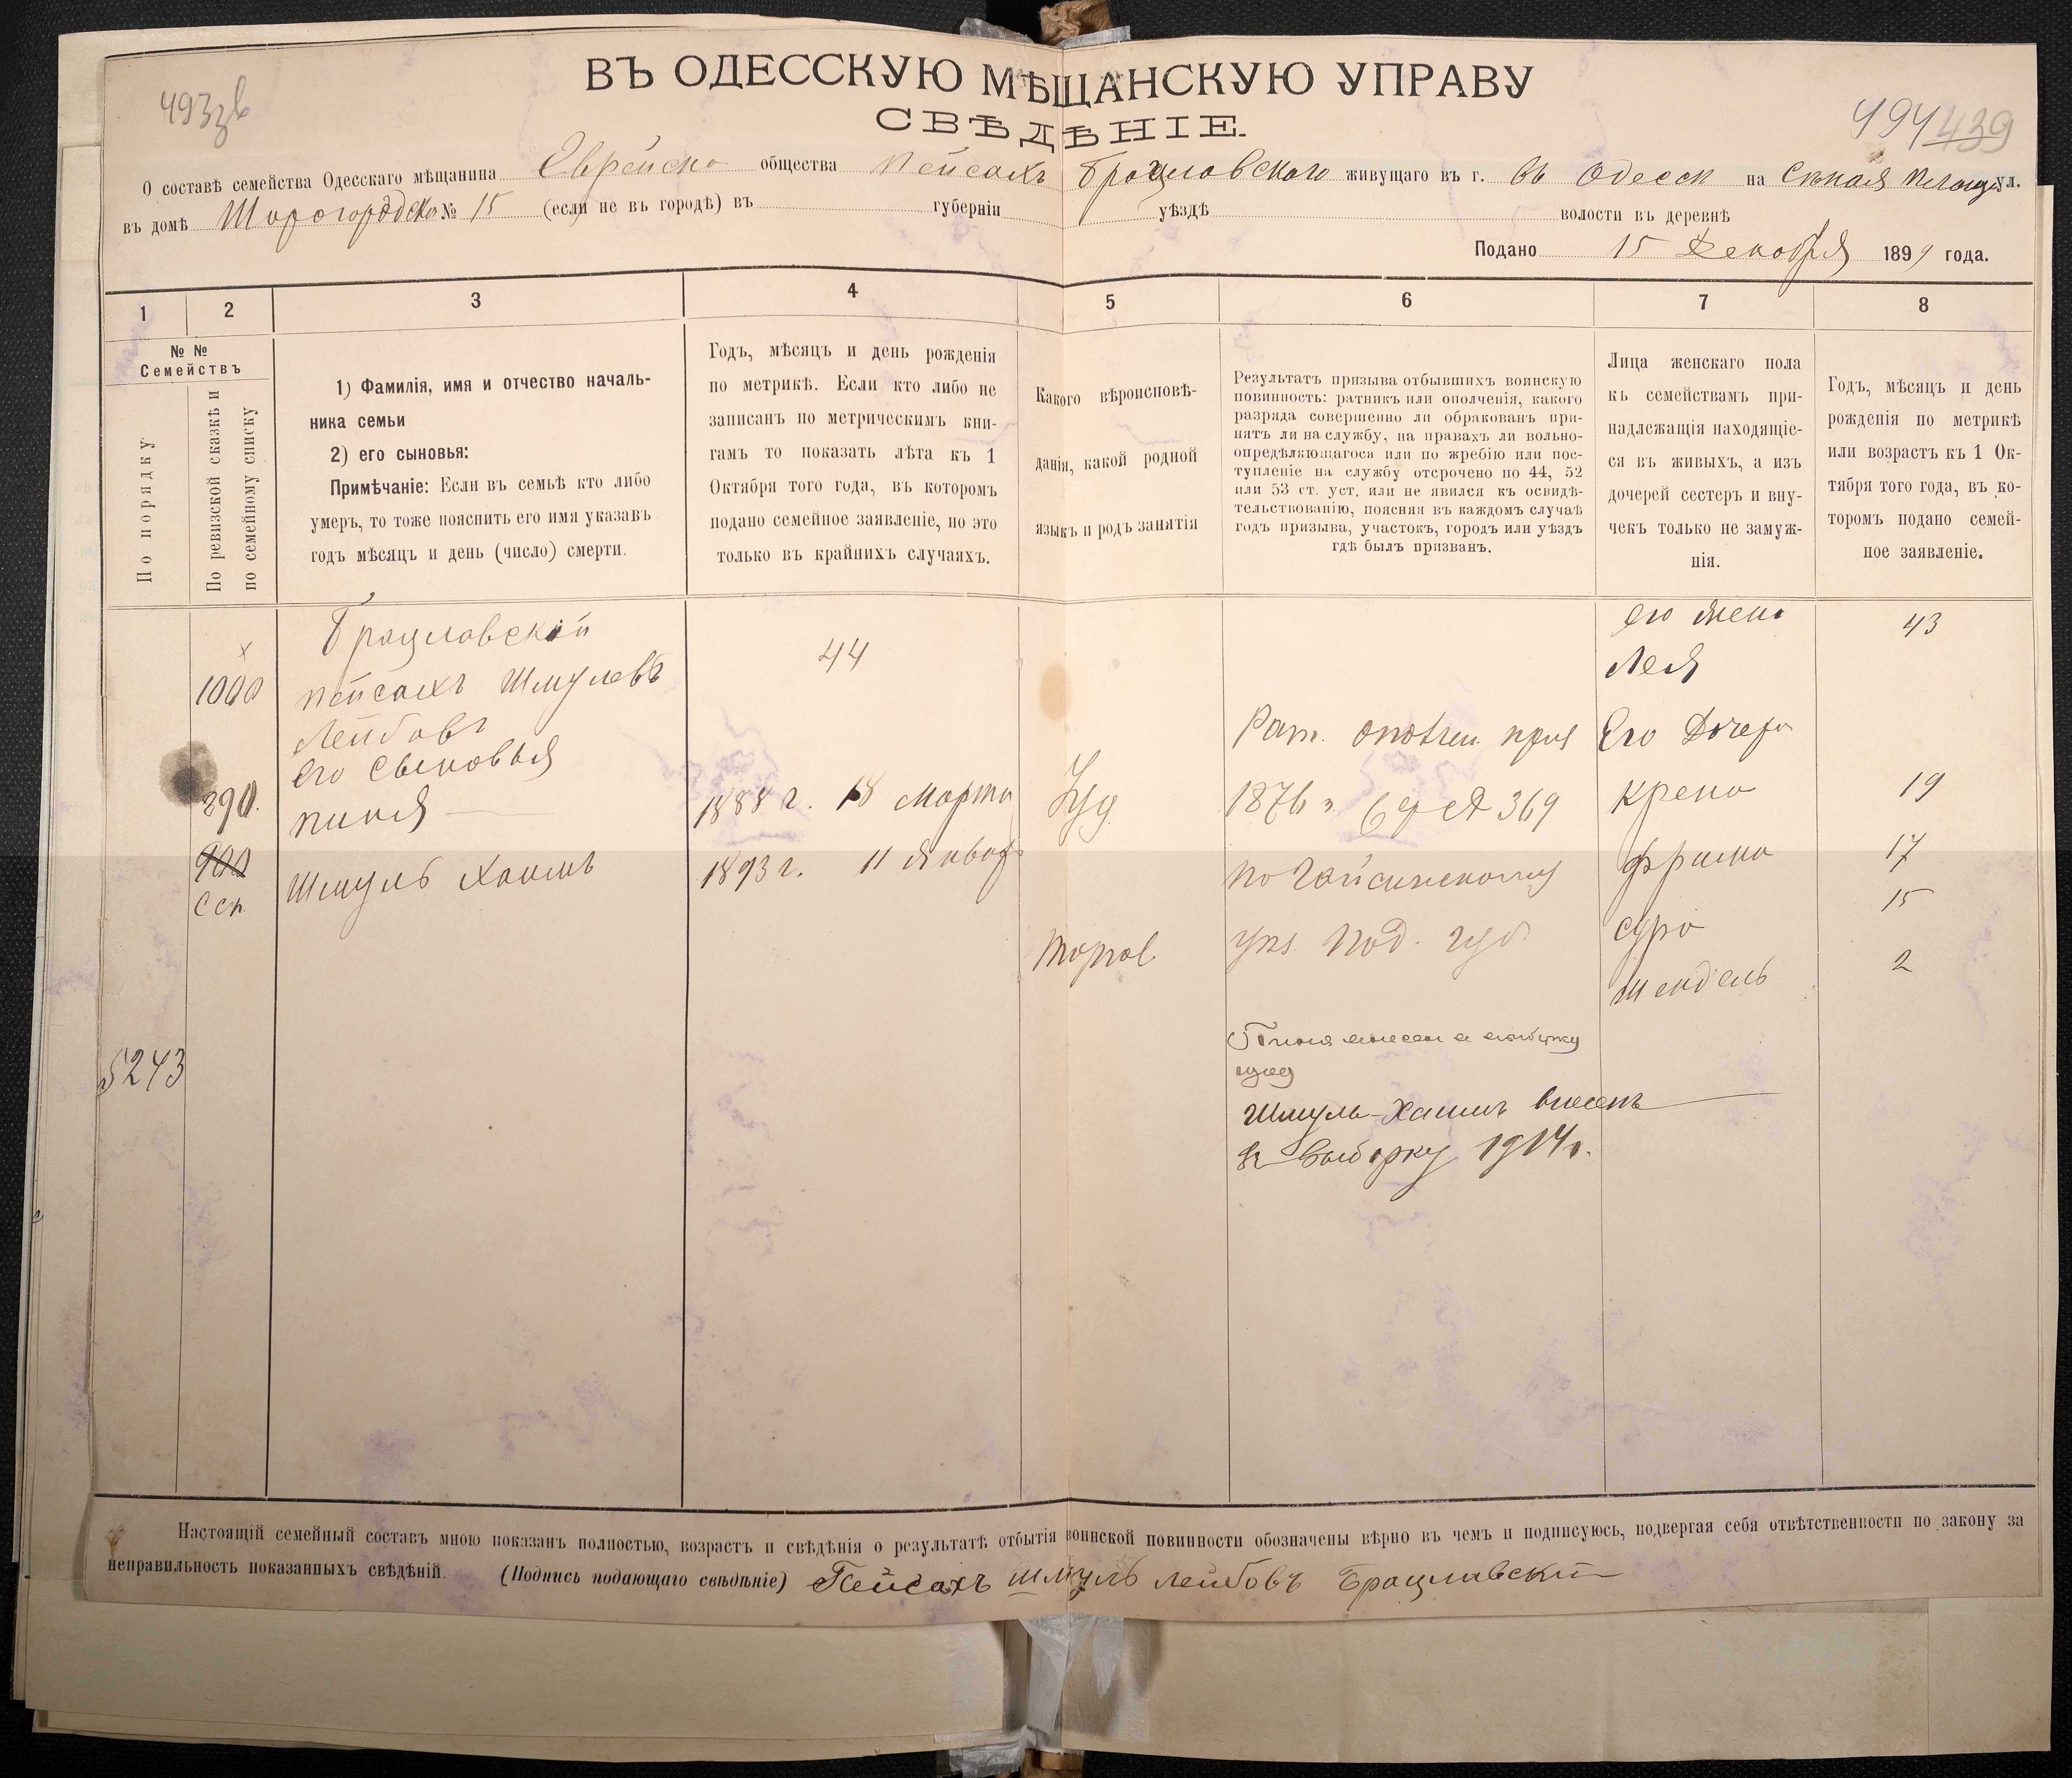 ВЪ ОДЕССКУЮ МѢЩАНСКУЮ УПРАВУ
СВѢДѢНІЕ.
494 439
О составѣ семейства Одесскаго мѣщанина Еврейско общества Пейсахъ Брацловского живущаго въ г. въ Одесск на Сенная площ ул.
въ домѣ № 15 (если не въ городѣ) въ губерніи уѣздѣ волости въ деревнѣ
Подано 15 Декабря 1899 года.
1 2 3 4 5 6 7 8
№ № Семействъ
По порядку
По ревизской сказкѣ и по семейному списку
1) Фамилія, имя и отчество началь-
ника семьи
2) его сыновья:
Примѣчаніе: Если въ семьѣ кто либо
умеръ, то тоже пояснить его имя указавъ
годъ мѣсяцъ и день (число) смерти.
Годъ, мѣсяцъ и день рожденія
по метрикѣ. Если кто либо не
записанъ по метрическимъ кни-
гамъ то показать лѣта къ 1
Октября того года, въ которомъ
подано семейное заявленіе, но это
только въ крайнихъ случаяхъ.
Какого вѣроисповѣ-
данія, какой родной
языкъ и родъ занятія
Результатъ призыва отбывшихъ воинскую
повинность: ратникъ или ополченія, какого
разряда совершенно ли обракованъ при-
нятъ ли на службу, на правахъ ли вольно-
опредѣляющагося или по жребію или пос-
тупленіе на службу отсрочено по 44, 52
или 53 ст. уст. или не явился къ освидѣ-
тельствованію, поясняя въ каждомъ случаѣ
годъ призыва, участокъ, городъ или уѣздъ
гдѣ былъ призванъ.
Лица женскаго пола
къ семействамъ при-
надлежащія находящіе-
ся въ живыхъ, а изъ
дочерей сестеръ и вну-
чекъ только не замуж-
нія.
Годъ, мѣсяцъ и день
рожденія по метрикѣ
или возрастъ къ 1 Ок-
тября того года, въ ко-
торомъ подано семей-
ное заявленіе.
Брацловский 44 его жена 43
1000 Пейсахъ Шмулевъ Лея
Лейбовъ
его сыновья Рат. ополчен Его Дочери
290. Пиня 1888 г. 18 Марта Иуд 1876 г 369 Крена 19
Шмуль Хаимъ 1893 г. 11 Январ по Гайсинскому Фрима 17
Торгов уез. Под. губ. Сура 15
Шендель 2
5243
Шмуль-Хаимъ внесенъ
въ выборку 1914 г.
Настоящій семейный составъ мною показанъ полностью, возрастъ и свѣдѣнія о результатѣ отбытія воинской повинности обозначены вѣрно въ чемъ и подписуюсь, подвергая себя отвѣтственности по закону за
неправильность показанныхъ свѣдѣній. (Подпись подающаго свѣдѣніе) Пейсахъ Шмуль Лейбовъ Брацлавский